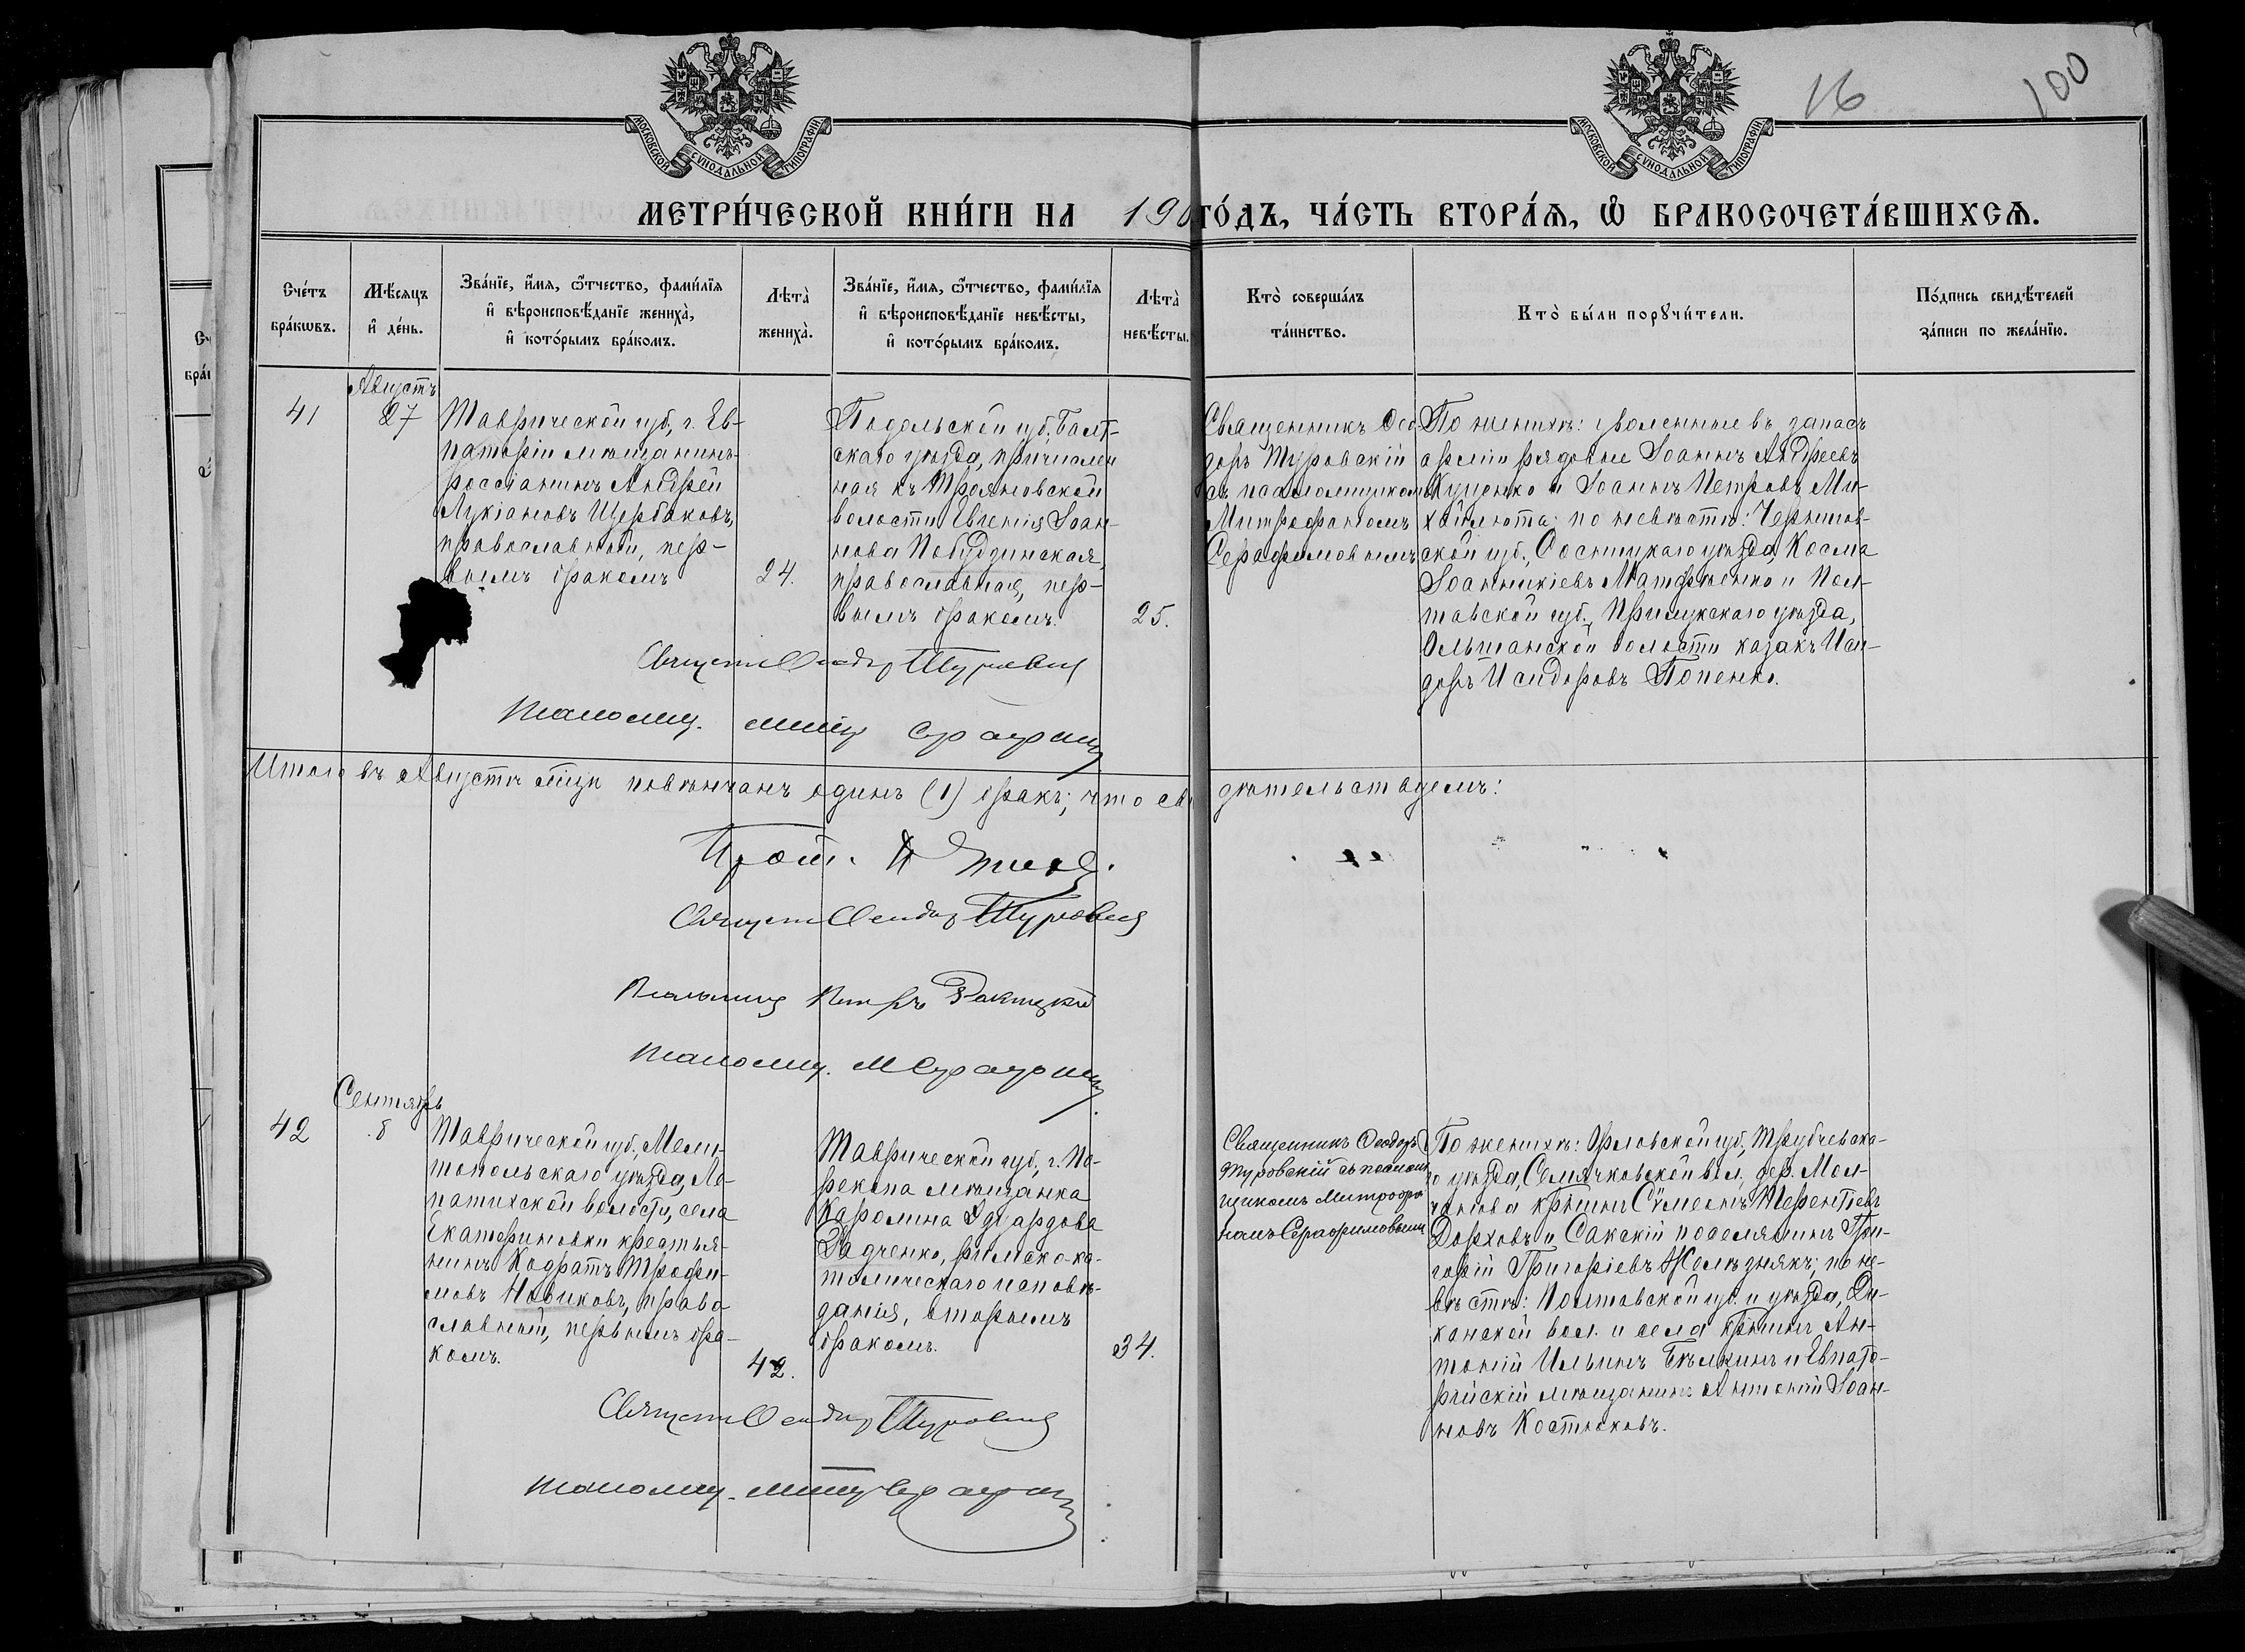 16
100
МОСКОВСКОЙ СѴНОДАЛЬНОЙ ТИПОГРАФІИ
МОСКОВСКОЙ СѴНОДАЛЬНОЙ ТИПОГРАФІИ
МЕТРИ́ЧЕСКОЙ КНИ́ГИ НА 190 ГО́ДЪ, ЧА́СТЬ ВТОРА́Ѧ, Ѽ БРАКОСОЧЕТА́ВШИХСѦ.
Сче́тъ
бра́кѡвъ.
Мѣ́сяцъ
и҆ де́нь.
Зва́нїе, и҆́мя, ѻ҆́тчество, фами́лїя
и҆ вѣроисповѣ́данїе жениха̀,
и҆ кото́рымъ бра́комъ.
Лѣта̀
жениха̀.
Зва́нїе, и҆́мя, ѻ҆́тчество, фами́лїя
и҆ вѣроисповѣ́данїе невѣ́сты,
и҆ кото́рымъ бра́комъ.
Лѣта̀
невѣ́сты.
Кто̀ соверша́лъ
та́инство.
Кто̀ бы́ли порꙋчи́тели.
По́дпись свидѣ́телей
за́писи по жела́нїю.
41
Августъ
27
Таврической губ., г. Ев-
паторіи мѣщанинъ
россіанинъ Андрей
Лукіановъ Щербаковъ,
православный, пер-
вымъ бракомъ
24.
Подольской губ., Балт-
скаго уѣзда, причислен
ная къ Трояновской
волости Евгенія Іоан-
нова Побудзинская,
православная, пер-
вымъ бракомъ.
25.
Священникъ Ѳео-
доръ Туровскій
съ псаломщикомъ
Митрофаномъ
Серафимовымъ
По женихѣ: уволенные въ запасъ
арміи рядовые Іоаннъ Андреевъ
Куценко и Іоаннъ Петровъ Ми-
хайлюта; по невѣстѣ: Чернигов-
ской губ., Сосницкаго уѣзда, Косма
Іоанникіевъ Матвѣенко и Пол-
тавской губ., Прилукскаго уѣзда,
Ольшанской волости казакъ Иси-
доръ Исидоровъ Попенко.
Священ Ѳеодор Туровскій
Псаломщ. Митр Серафим
Итого въ Августѣ мѣцѣ повѣнчанъ одинъ (1) бракъ; что свидѣтельствуемъ:
Прот.
Священ Ѳеодор Туровскій
Псаломщ Петръ Ракицкій
Псаломщ. М Серафим
42
Сентябрь
8
Таврической губ., Мели-
топольскаго уѣзда, Ло-
патихской волости, села
Екатериновки крестья-
нинъ Кодратъ Трофи-
мовъ Новиковъ, право
славный, первымъ бра-
комъ.
42.
Таврической губ., г. Пе-
рекопа мѣщанка
Каролина Эдуардова
Радченко, римско-ка-
толическаго исповѣ-
данія, вторымъ
бракомъ.
34.
Священникъ Ѳеодоръ
Туровскій съ псалом
щикомъ Митрофа
номъ Серафимовымъ
По женихѣ: Орловской губ., Трубчевска-
го уѣзда, Семячковской вол., дер. Мол-
чанова крѣнинъ Сѵмеонъ Терентіевъ
Дорховъ и Сакскій поселянинъ Гри-
горій Григоріевъ Желѣзнякъ; по не-
вѣстѣ: Полтавской губ. и уѣзда, Ди-
канской вол. и села крѣнинъ Ан-
тоній Ильинъ Бѣлкинъ и Евпато-
рійскій мѣщанинъ Антоній Іоан-
новъ Костюковъ.
Священ Ѳеодор Туровскій
Псаломщ. Митр Серафим